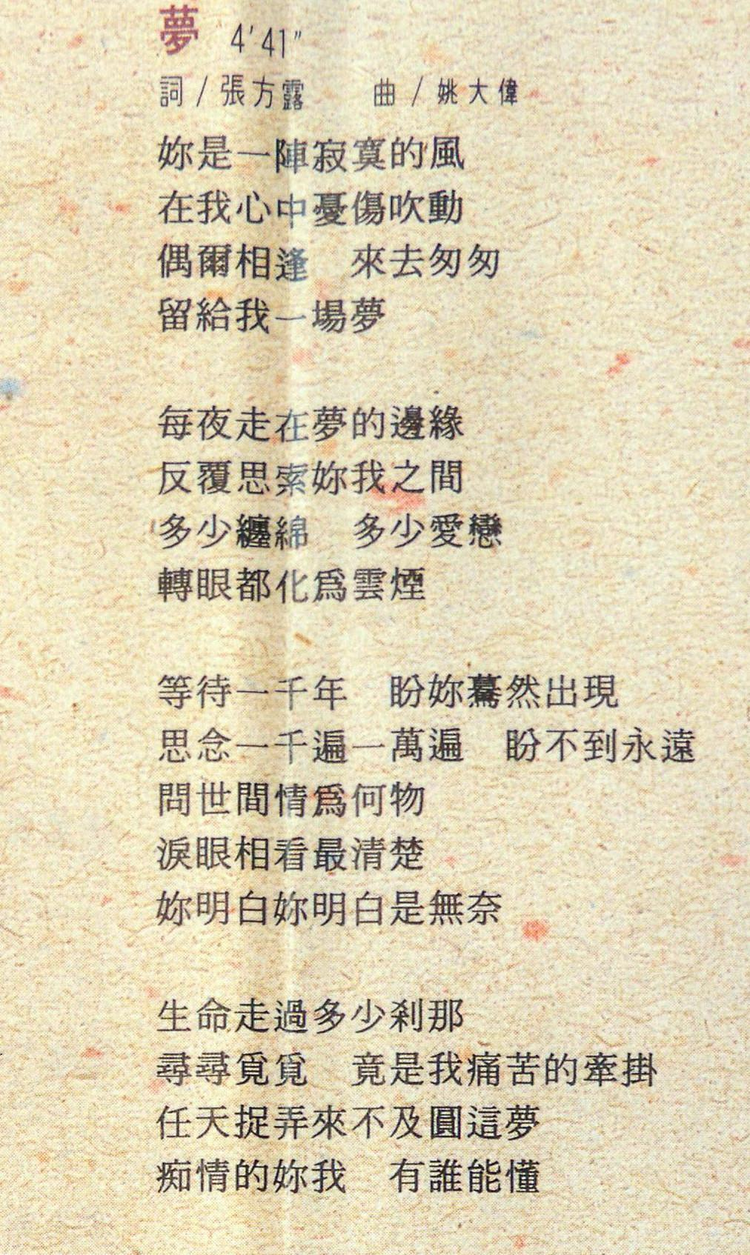 夢 4'41"
詞/張方露 曲/姚大偉
妳是一陣寂寞的風
在我心中憂傷吹動
偶爾相逢 來去匆匆
留給我一場夢
每夜走在夢的邊緣
反覆思索妳我之間
多少纏綿 多少愛戀
轉眼都化為雲煙
等待一千年 盼妳驀然出現
思念一千遍一萬遍 盼不到永遠
問世間情為何物
淚眼相看最清楚
妳明白妳明白是無奈
生命走過多少剎那
尋尋覓覓 竟是我痛苦的牽掛
任天捉弄來不及圓這夢
痴情的妳我 有誰能懂